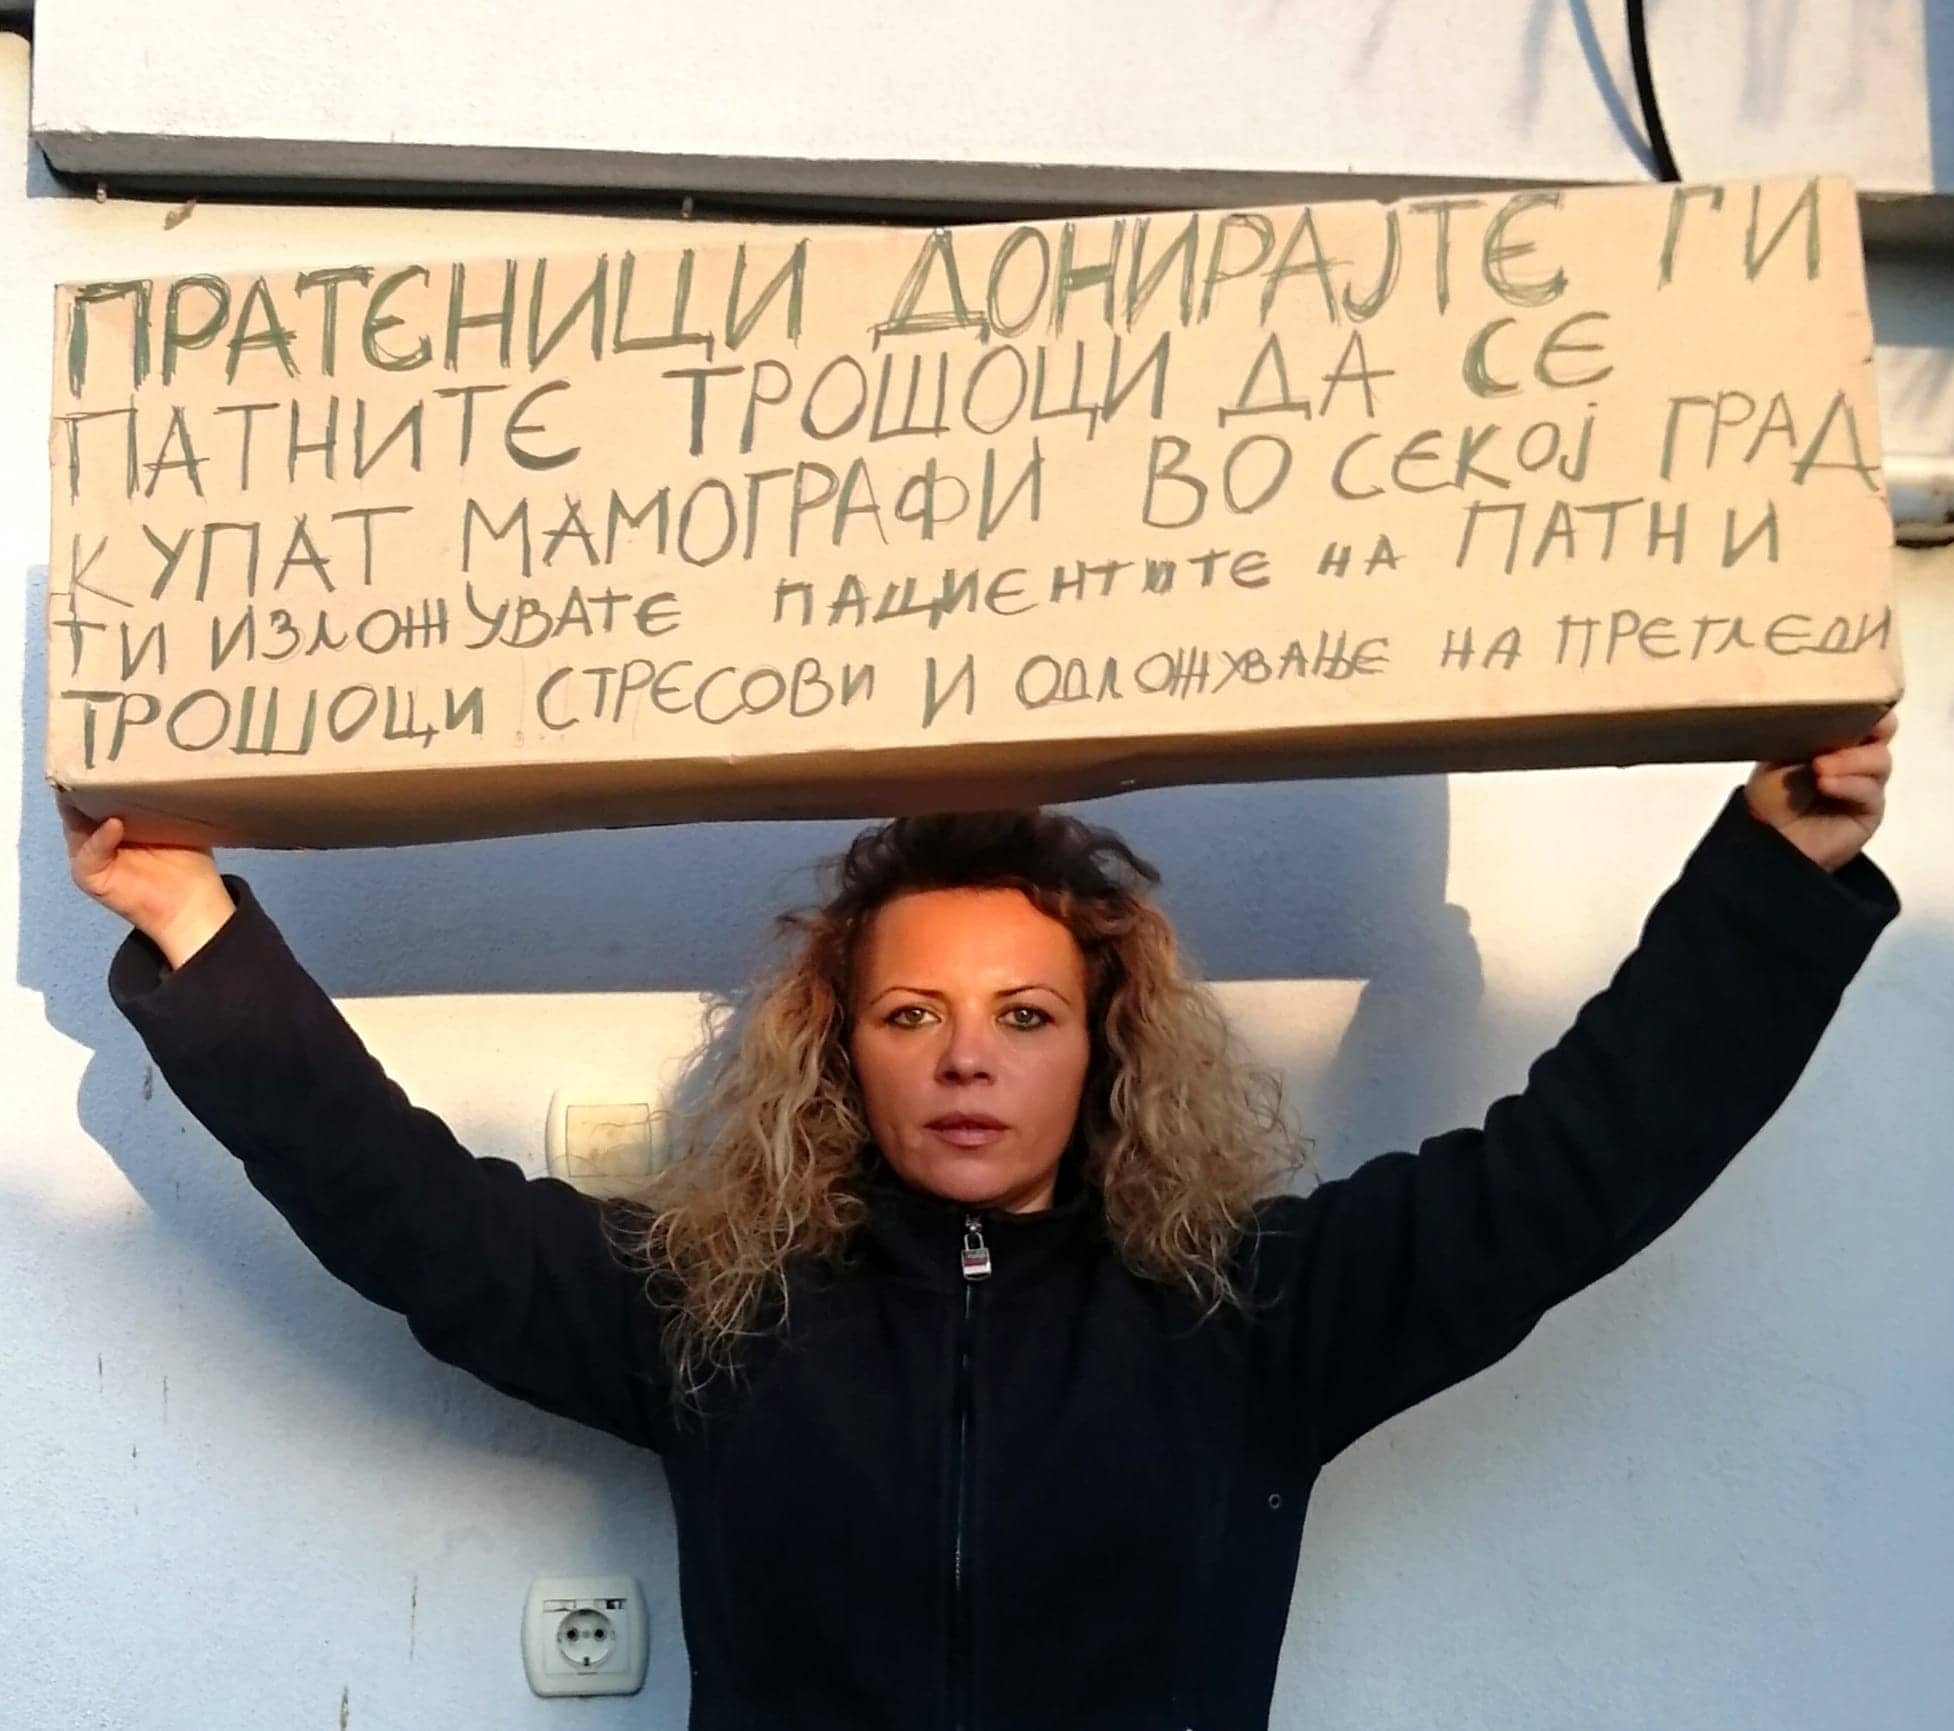 ПРАТЕНИЦИ ДОНИРАЈТЕ ГИ
ПАТНИТЕ ТРОШОЦИ ДА СЕ
КУПАТ МАМОГРАФИ ВО СЕКОЈ ГРАД
ГИ ИЗЛОЖУВАТЕ ПАЦИЕНТИТЕ НА ПАТНИ
ТРОШОЦИ СТРЕСОВИ И ОДЛОЖУВАЊЕ НА ПРЕГЛЕДИ